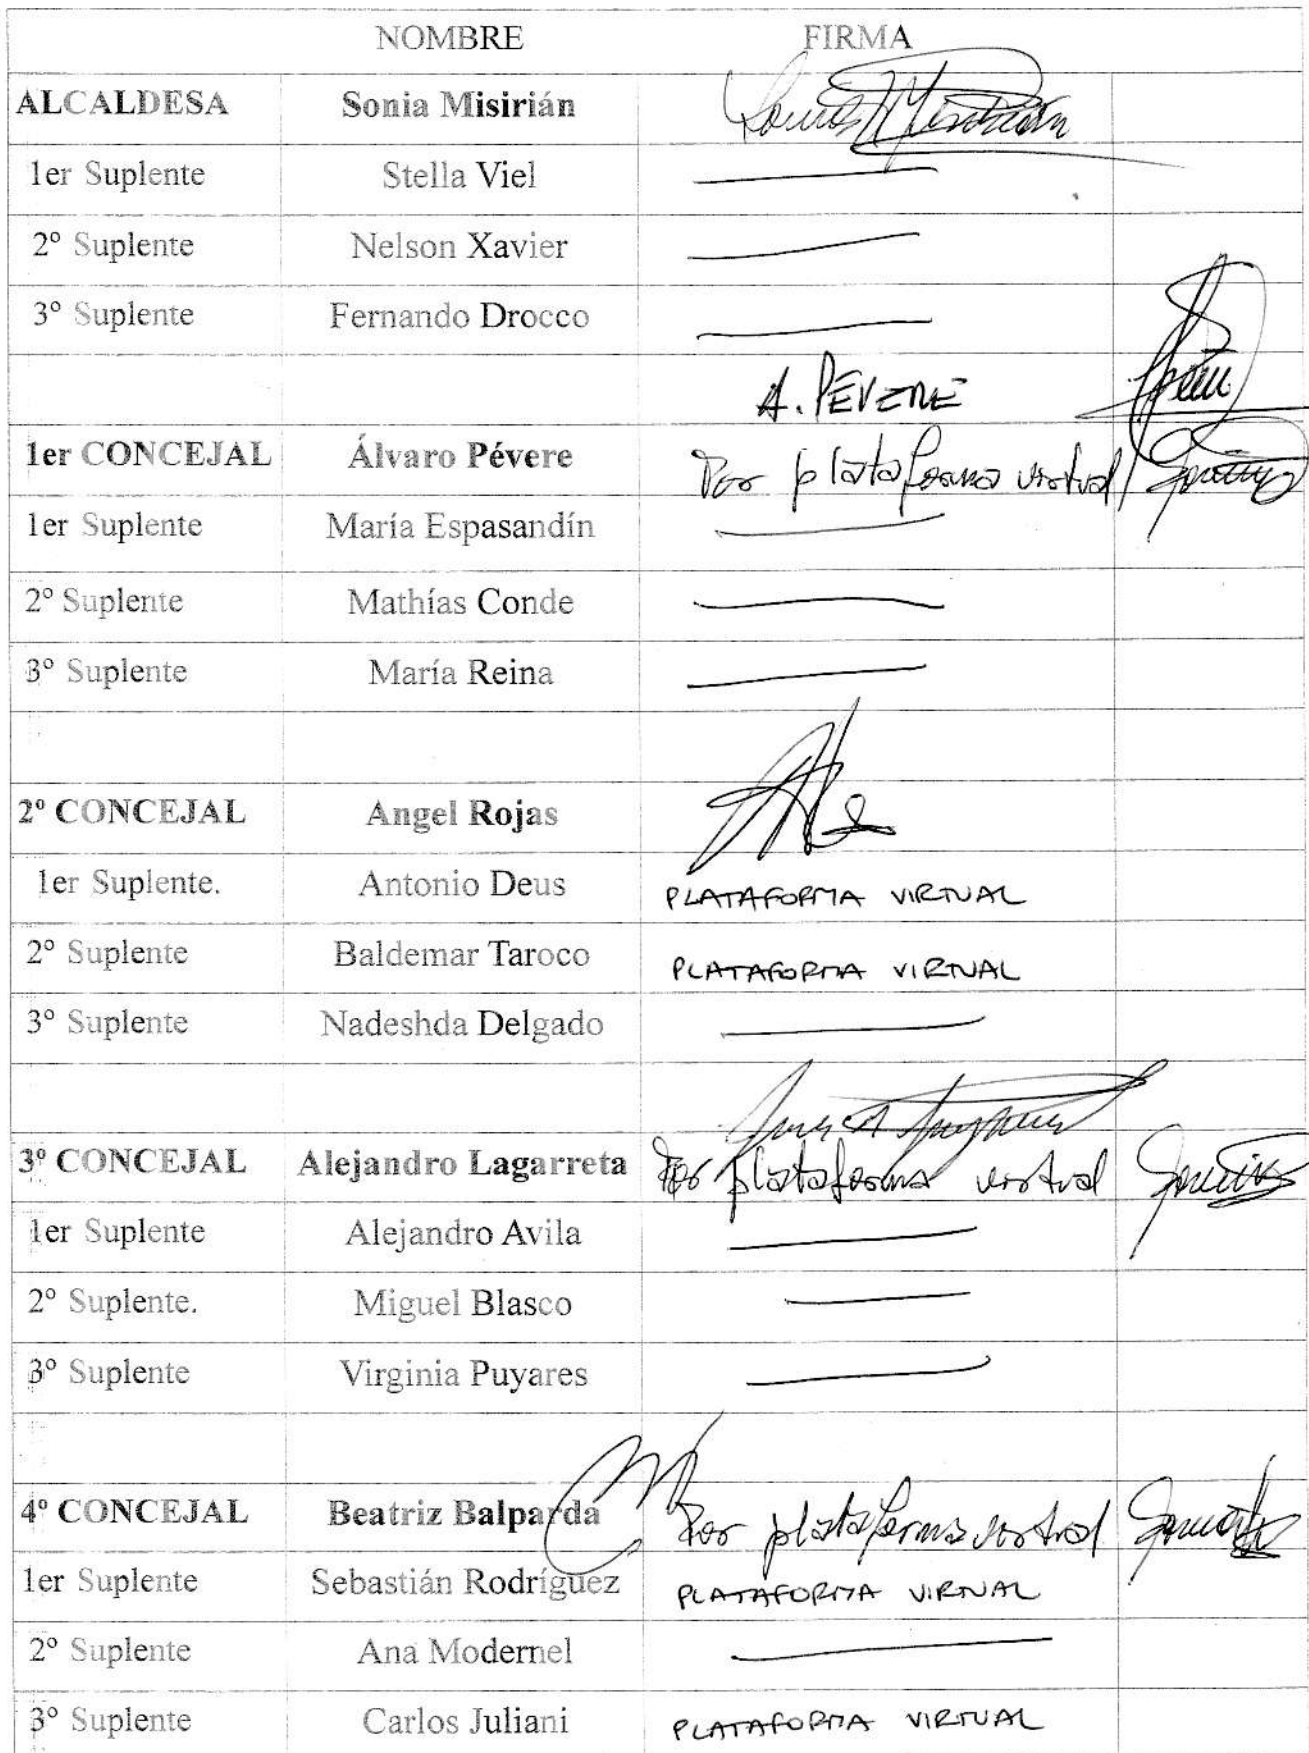 NOMBRE FIRMA
ALCALDESA Sonia Misirián
1er Suplente Stella Viel
2º Suplente Nelson Xavier
3º Suplente Fernando Drocco
A. PEVERE
1er CONCEJAL Álvaro Pévere Por plataforma virtual
1er Suplente María Espasandín
2º Suplente Mathías Conde
3º Suplente María Reina
2º CONCEJAL Angel Rojas
1er Suplente. Antonio Deus PLATAFORMA VIRTUAL
2º Suplente Baldemar Taroco PLATAFORMA VIRTUAL
3º Suplente Nadeshda Delgado
3º CONCEJAL Alejandro Lagarreta Por plataforma virtual
1er Suplente Alejandro Avila
2º Suplente. Miguel Blasco
3º Suplente Virginia Puyares
4º CONCEJAL Beatriz Balparda Por plataforma virtual
1er Suplente Sebastián Rodríguez PLATAFORMA VIRTUAL
2º Suplente Ana Modernel
3º Suplente Carlos Juliani PLATAFORMA VIRTUAL